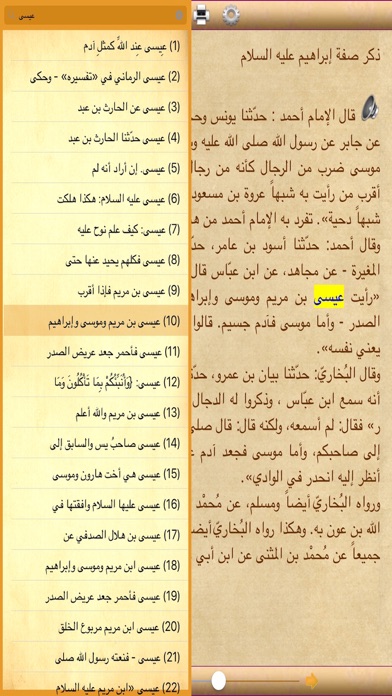 عيسى
(1) عيسى عند اللّٰه كمثل آدم
(2) عيسى الرماني في «تفسيره» - وحكى
(3) عيسى عن الحارث بن عبد
(4) عيسى حدّثنا الحارث بن عبد
(5) عيسى. إن أراد أنه لم
(6) عيسى عليه السلام: هكذا هلكت
(7) عيسى: كيف علم نوح عليه
(8) عيسى فكلهم يحيد عنها حتى
(9) عيسى بن مريم فإذا أقرب
(10) عيسى بن مريم وموسى وإبراهيم
(11) عيسى فأحمر جعد عريض الصدر
(12) عيسى: {وَأُنَبِّئُكُم بِمَا تَأْكُلُونَ وَمَا
(13) عيسى بن مريم واللّٰه أعلم
(14) عيسى صاحبُ يس والسابق إلى
(15) عيسى هي أخت هارون وموسى
(16) عيسى عليها السلام وافقتها في
(17) عيسى بن هلال الصدفي عن
(18) عيسى ابن مريم وموسى وإبراهيم
(19) عيسى فأحمر جعد عريض الصدر
(20) عيسى ابن مريم مربوع الخلق
(21) عيسى - فنعته رسول اللّٰه صلى
(22) عيسى «ابن مريم عليه السلام
ذكر صفة إبراهيم عليه السلام
قال الإمام أحمد : حدّثنا يونس وح
عن جابر عن رسول اللّٰه صلى اللّٰه عليه و
موسى ضرب من الرجال كأنه من رجال
أقرب من رأيت به شبهاً عروة بن مسعود
شبهاً دحية». تفرد به الإمام أحمد من ه
وقال أحمد: حدّثنا أسود بن عامر، حدّ
المغيرة - عن مجاهد، عن ابن عبّاس قال
«رأيت عيسى بن مريم وموسى وإبرا
الصدر - وأما موسى فآدم جسيم. قالوا
يعني نفسه».
وقال البُخاريّ: حدّثنا بيان بن عمرو، حدّ
أنه سمع ابن عبّاس ، وذكروا له الدجال
ر» فقال: لم أسمعه، ولكنه قال: قال صل
إلى صاحبكم، وأما موسى فجعد آدم ع
أنظر إليه انحدر في الوادي».
ورواه البُخاريّ أيضاً ومسلم، عن مُحمّد
اللّٰه بن عون به. وهكذا رواه البُخاريّ أيض
جميعاً عن مُحمّد بن المثنى عن ابن أبي